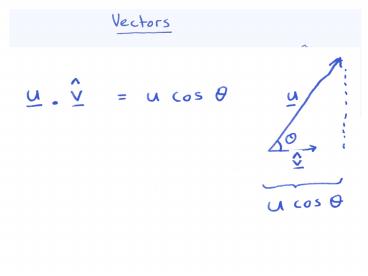 Vectors
u . v̂ = u cos θ
u
θ
v̂
u cos θ